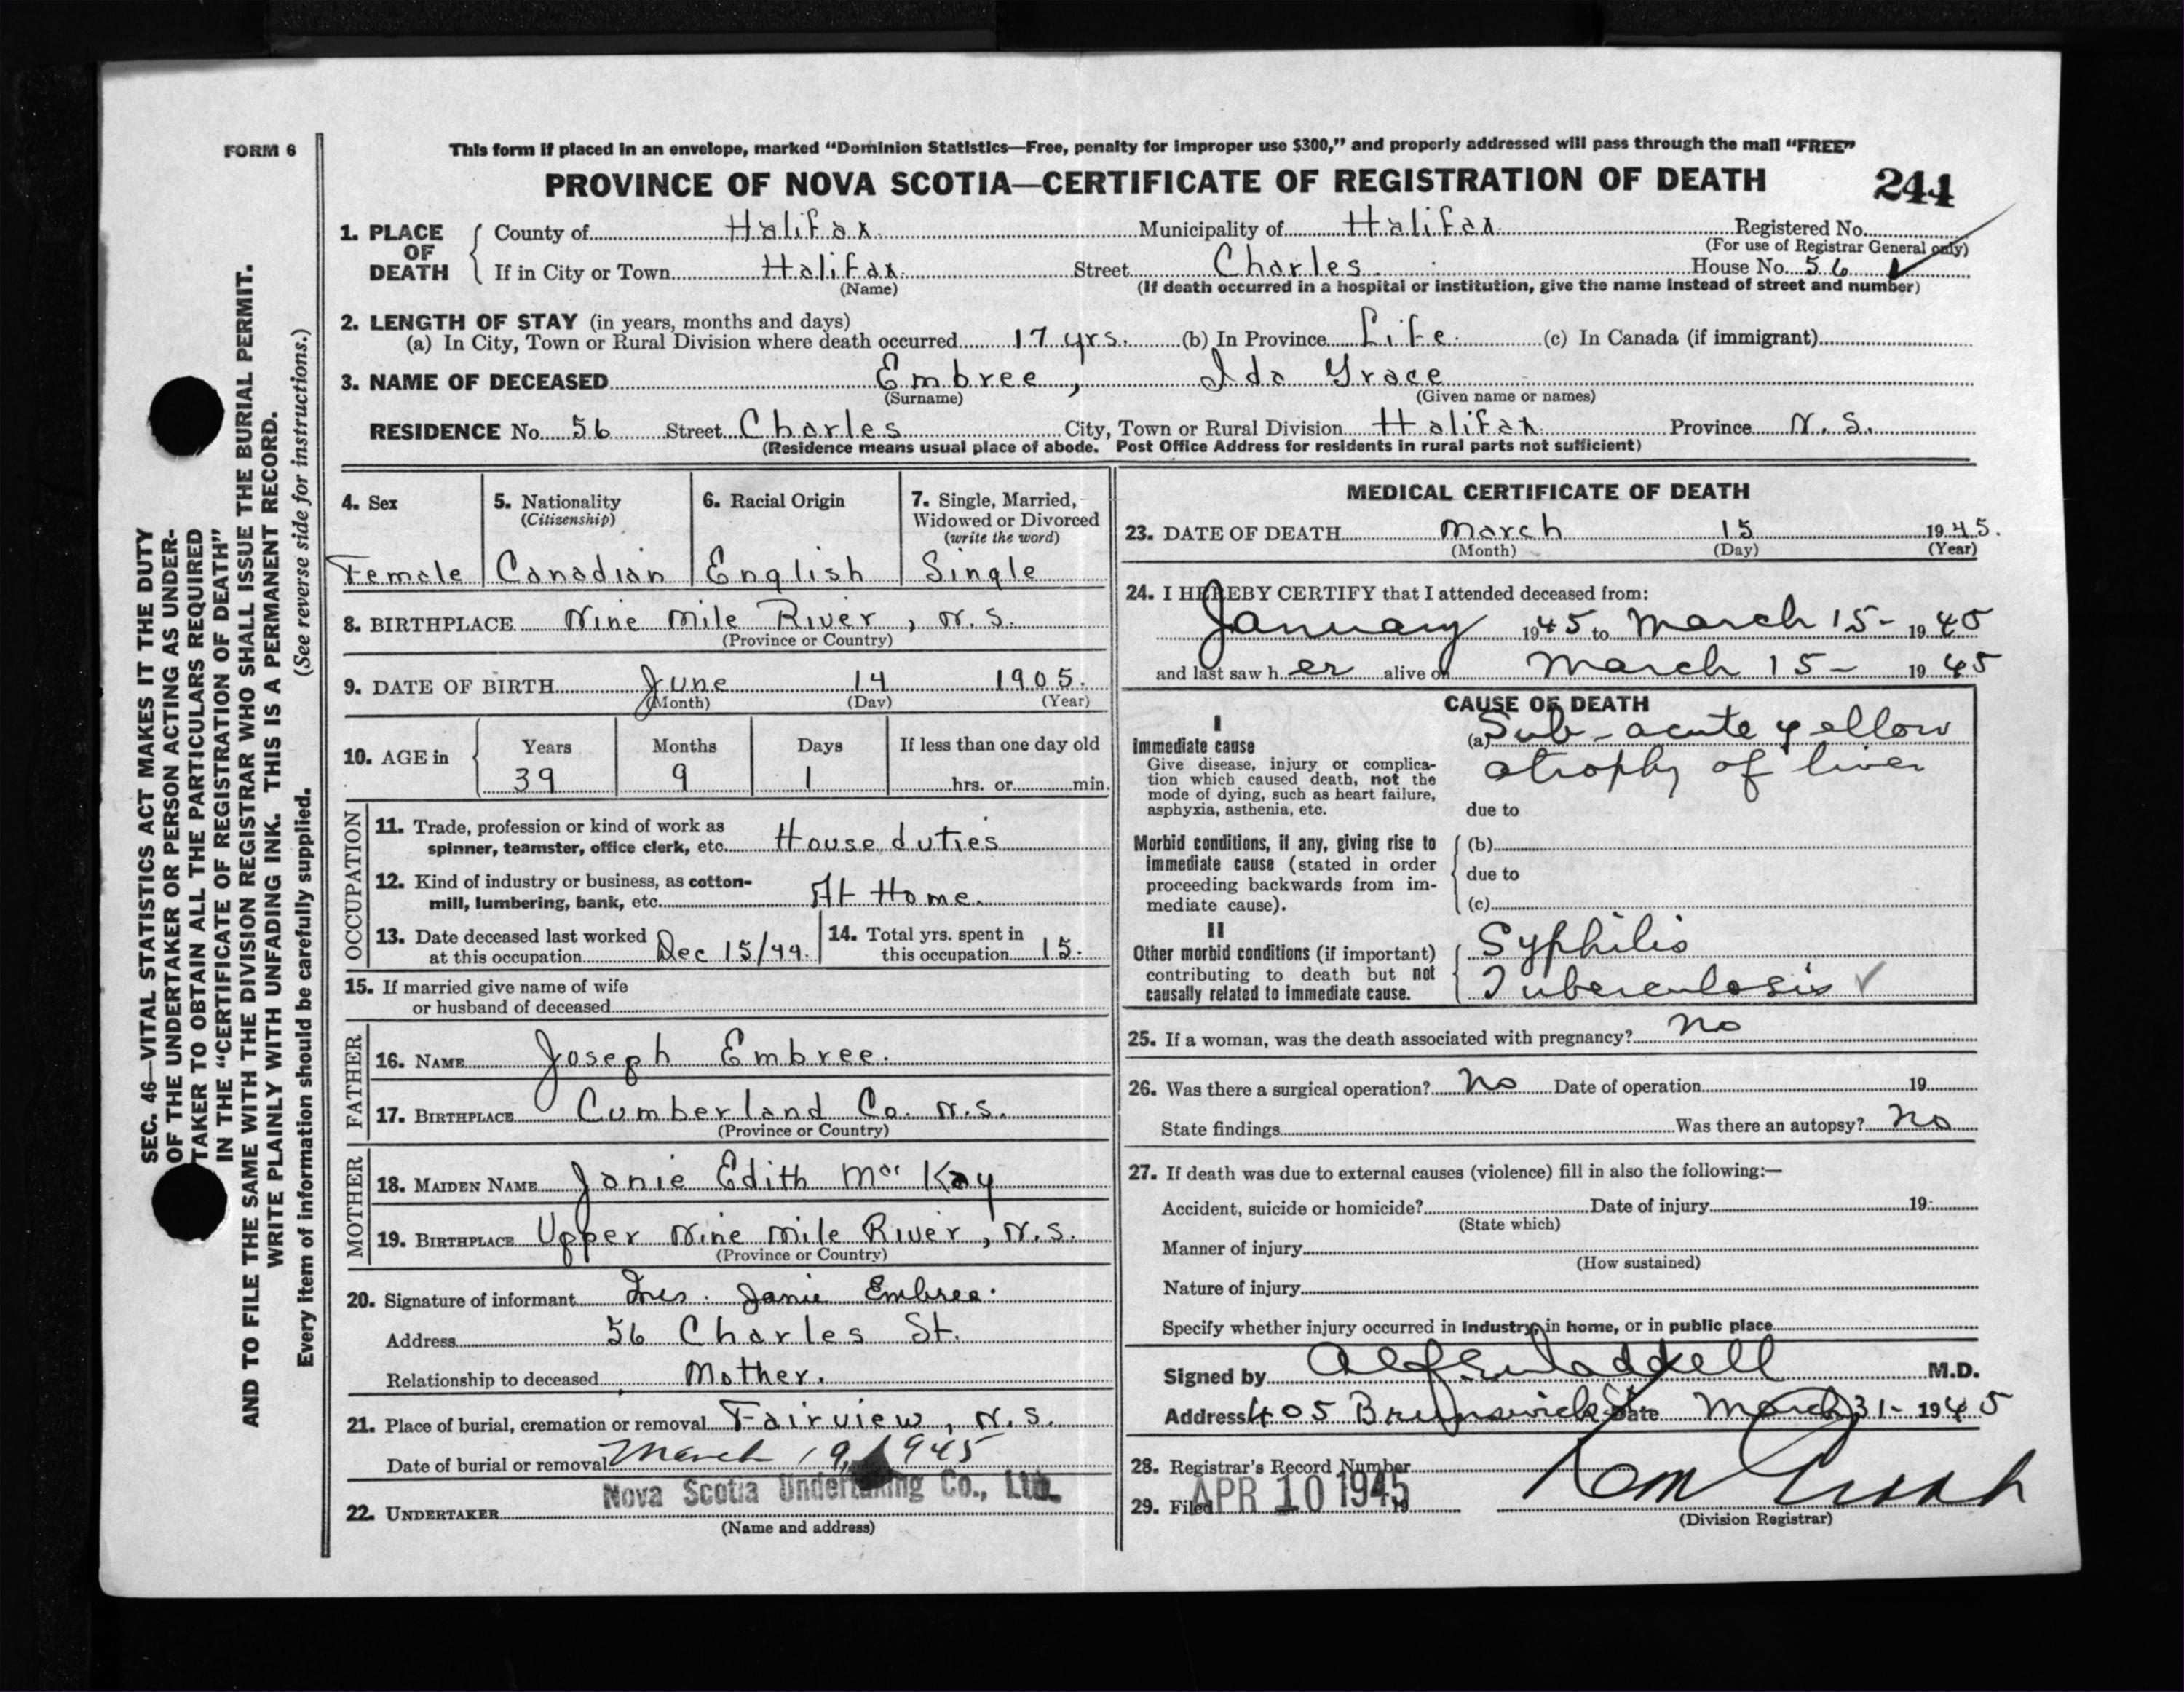 FORM 6
This form if placed in an envelope, marked “Dominion Statistics—Free, penalty for improper use $300,” and properly addressed will pass through the mail “FREE”
PROVINCE OF NOVA SCOTIA—CERTIFICATE OF REGISTRATION OF DEATH 244
SEC. 46—VITAL STATISTICS ACT MAKES IT THE DUTY
OF THE UNDERTAKER OR PERSON ACTING AS UNDER-
TAKER TO OBTAIN ALL THE PARTICULARS REQUIRED
IN THE “CERTIFICATE OF REGISTRATION OF DEATH”
AND TO FILE THE SAME WITH THE DIVISION REGISTRAR WHO SHALL ISSUE THE BURIAL PERMIT.
WRITE PLAINLY WITH UNFADING INK. THIS IS A PERMANENT RECORD.
Every item of information should be carefully supplied. (See reverse side for instructions.)
1. PLACE OF DEATH
County of Halifax Municipality of Halifax Registered No.
(For use of Registrar General only)
If in City or Town Halifax Street Charles House No. 56
(Name) (If death occurred in a hospital or institution, give the name instead of street and number)
2. LENGTH OF STAY (in years, months and days)
(a) In City, Town or Rural Division where death occurred 17 yrs. (b) In Province Life. (c) In Canada (if immigrant)
3. NAME OF DECEASED Embree, Ida Grace
(Surname) (Given name or names)
RESIDENCE No. 56 Street Charles City, Town or Rural Division Halifax Province N. S.
(Residence means usual place of abode. Post Office Address for residents in rural parts not sufficient)
4. Sex 5. Nationality (Citizenship) 6. Racial Origin 7. Single, Married, Widowed or Divorced (write the word)
Female Canadian English Single
8. BIRTHPLACE Nine Mile River, N. S.
(Province or Country)
9. DATE OF BIRTH June 14 1905.
(Month) (Day) (Year)
10. AGE in Years Months Days If less than one day old
39 9 1 hrs. or min.
OCCUPATION
11. Trade, profession or kind of work as
spinner, teamster, office clerk, etc. House duties
12. Kind of industry or business, as cotton-
mill, lumbering, bank, etc. At Home.
13. Date deceased last worked
at this occupation Dec 15/44.
14. Total yrs. spent in
this occupation 15.
15. If married give name of wife
or husband of deceased
FATHER
16. NAME Joseph Embree.
17. BIRTHPLACE Cumberland Co. N.S.
(Province or Country)
MOTHER
18. MAIDEN NAME Janie Edith Mac Kay
19. BIRTHPLACE Upper Nine Mile River, N.S.
(Province or Country)
20. Signature of informant Mrs. Janie Embree.
Address 56 Charles St.
Relationship to deceased Mother.
21. Place of burial, cremation or removal Fairview, N. S.
Date of burial or removal March 19, 1945
Nova Scotia Undertaking Co., Ltd.
22. UNDERTAKER
(Name and address)
MEDICAL CERTIFICATE OF DEATH
23. DATE OF DEATH March 15 1945.
(Month) (Day) (Year)
24. I HEREBY CERTIFY that I attended deceased from:
January 1945 to March 15- 1945
and last saw her alive on March 15- 1945
CAUSE OF DEATH
I
Immediate cause
Give disease, injury or complica-
tion which caused death, not the
mode of dying, such as heart failure,
asphyxia, asthenia, etc.
(a) Sub-acute yellow
atrophy of liver
due to
Morbid conditions, if any, giving rise to
immediate cause (stated in order
proceeding backwards from im-
mediate cause).
(b)
due to
(c)
II
Other morbid conditions (if important)
contributing to death but not
causally related to immediate cause.
Syphilis
Tuberculosis ✓
25. If a woman, was the death associated with pregnancy? No
26. Was there a surgical operation? No Date of operation 19
State findings Was there an autopsy? No
27. If death was due to external causes (violence) fill in also the following:—
Accident, suicide or homicide? Date of injury 19
(State which)
Manner of injury
(How sustained)
Nature of injury
Specify whether injury occurred in Industry, in home, or in public place
Signed by Waddell M.D.
Address 405 Brunswick St Date March 31- 1945
28. Registrar's Record Number
29. Filed APR 10 1945 19
(Division Registrar)